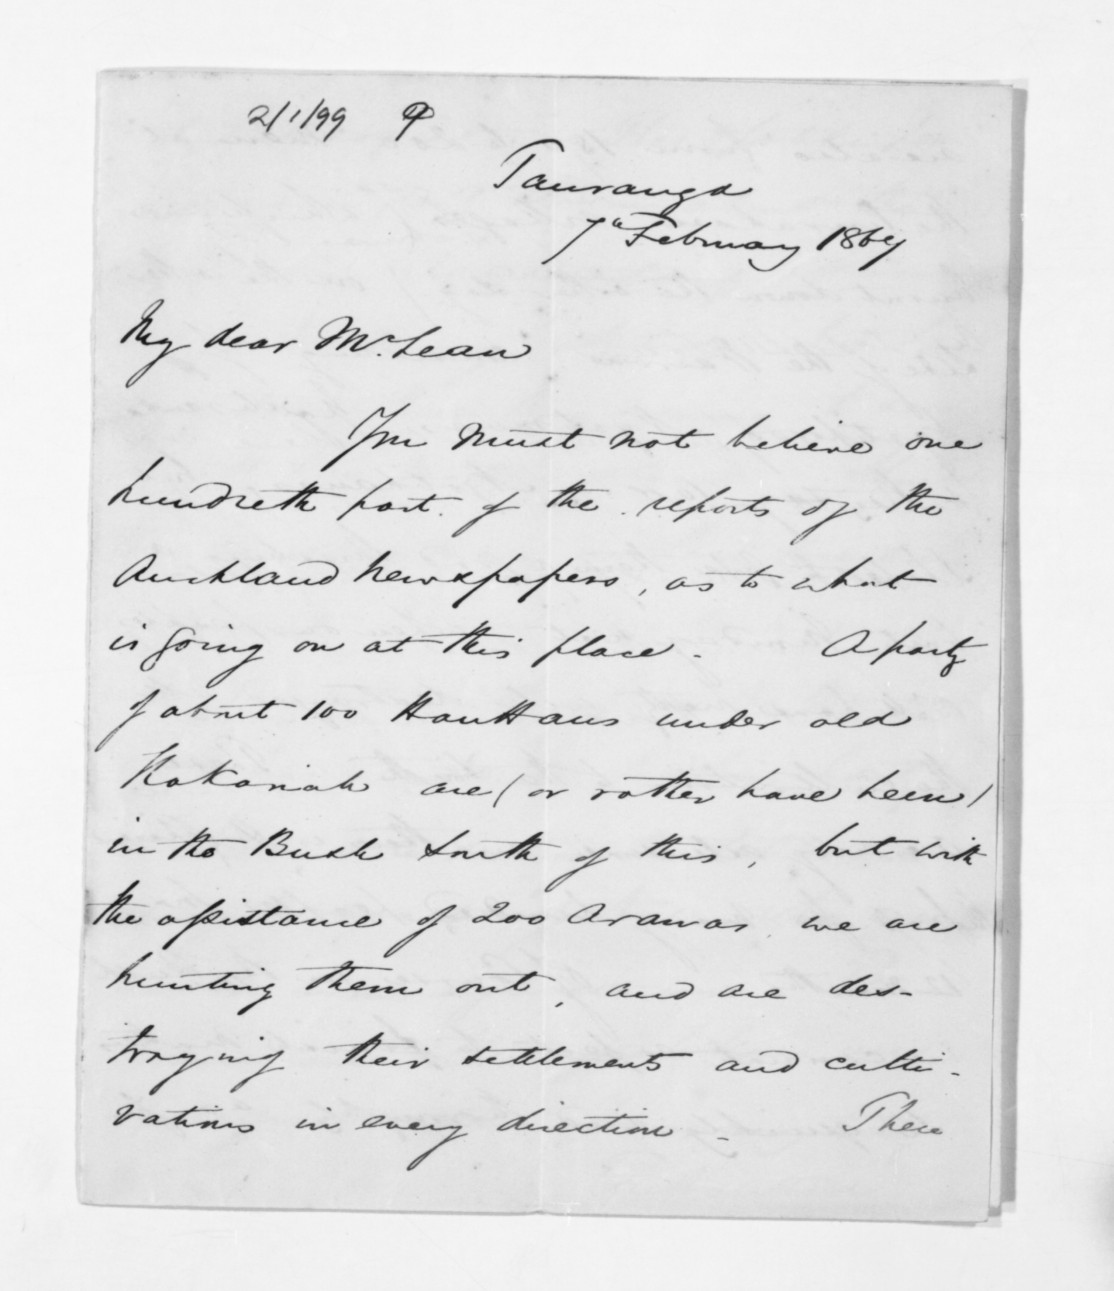 2/1/99
Tauranga
7th February 1867
My dear McLean
You must not believe one
hundredth part of the reports of the
Auckland Newspapers, as to what
is going on at this place. A party
of about 100 HauHaus under old
Hakariah are (or rather have been)
in the Bush South of this, but with
the assistance of 200 Arawas we are
hunting them out, and are des-
troying their settlements and culti-
vations in every direction. There